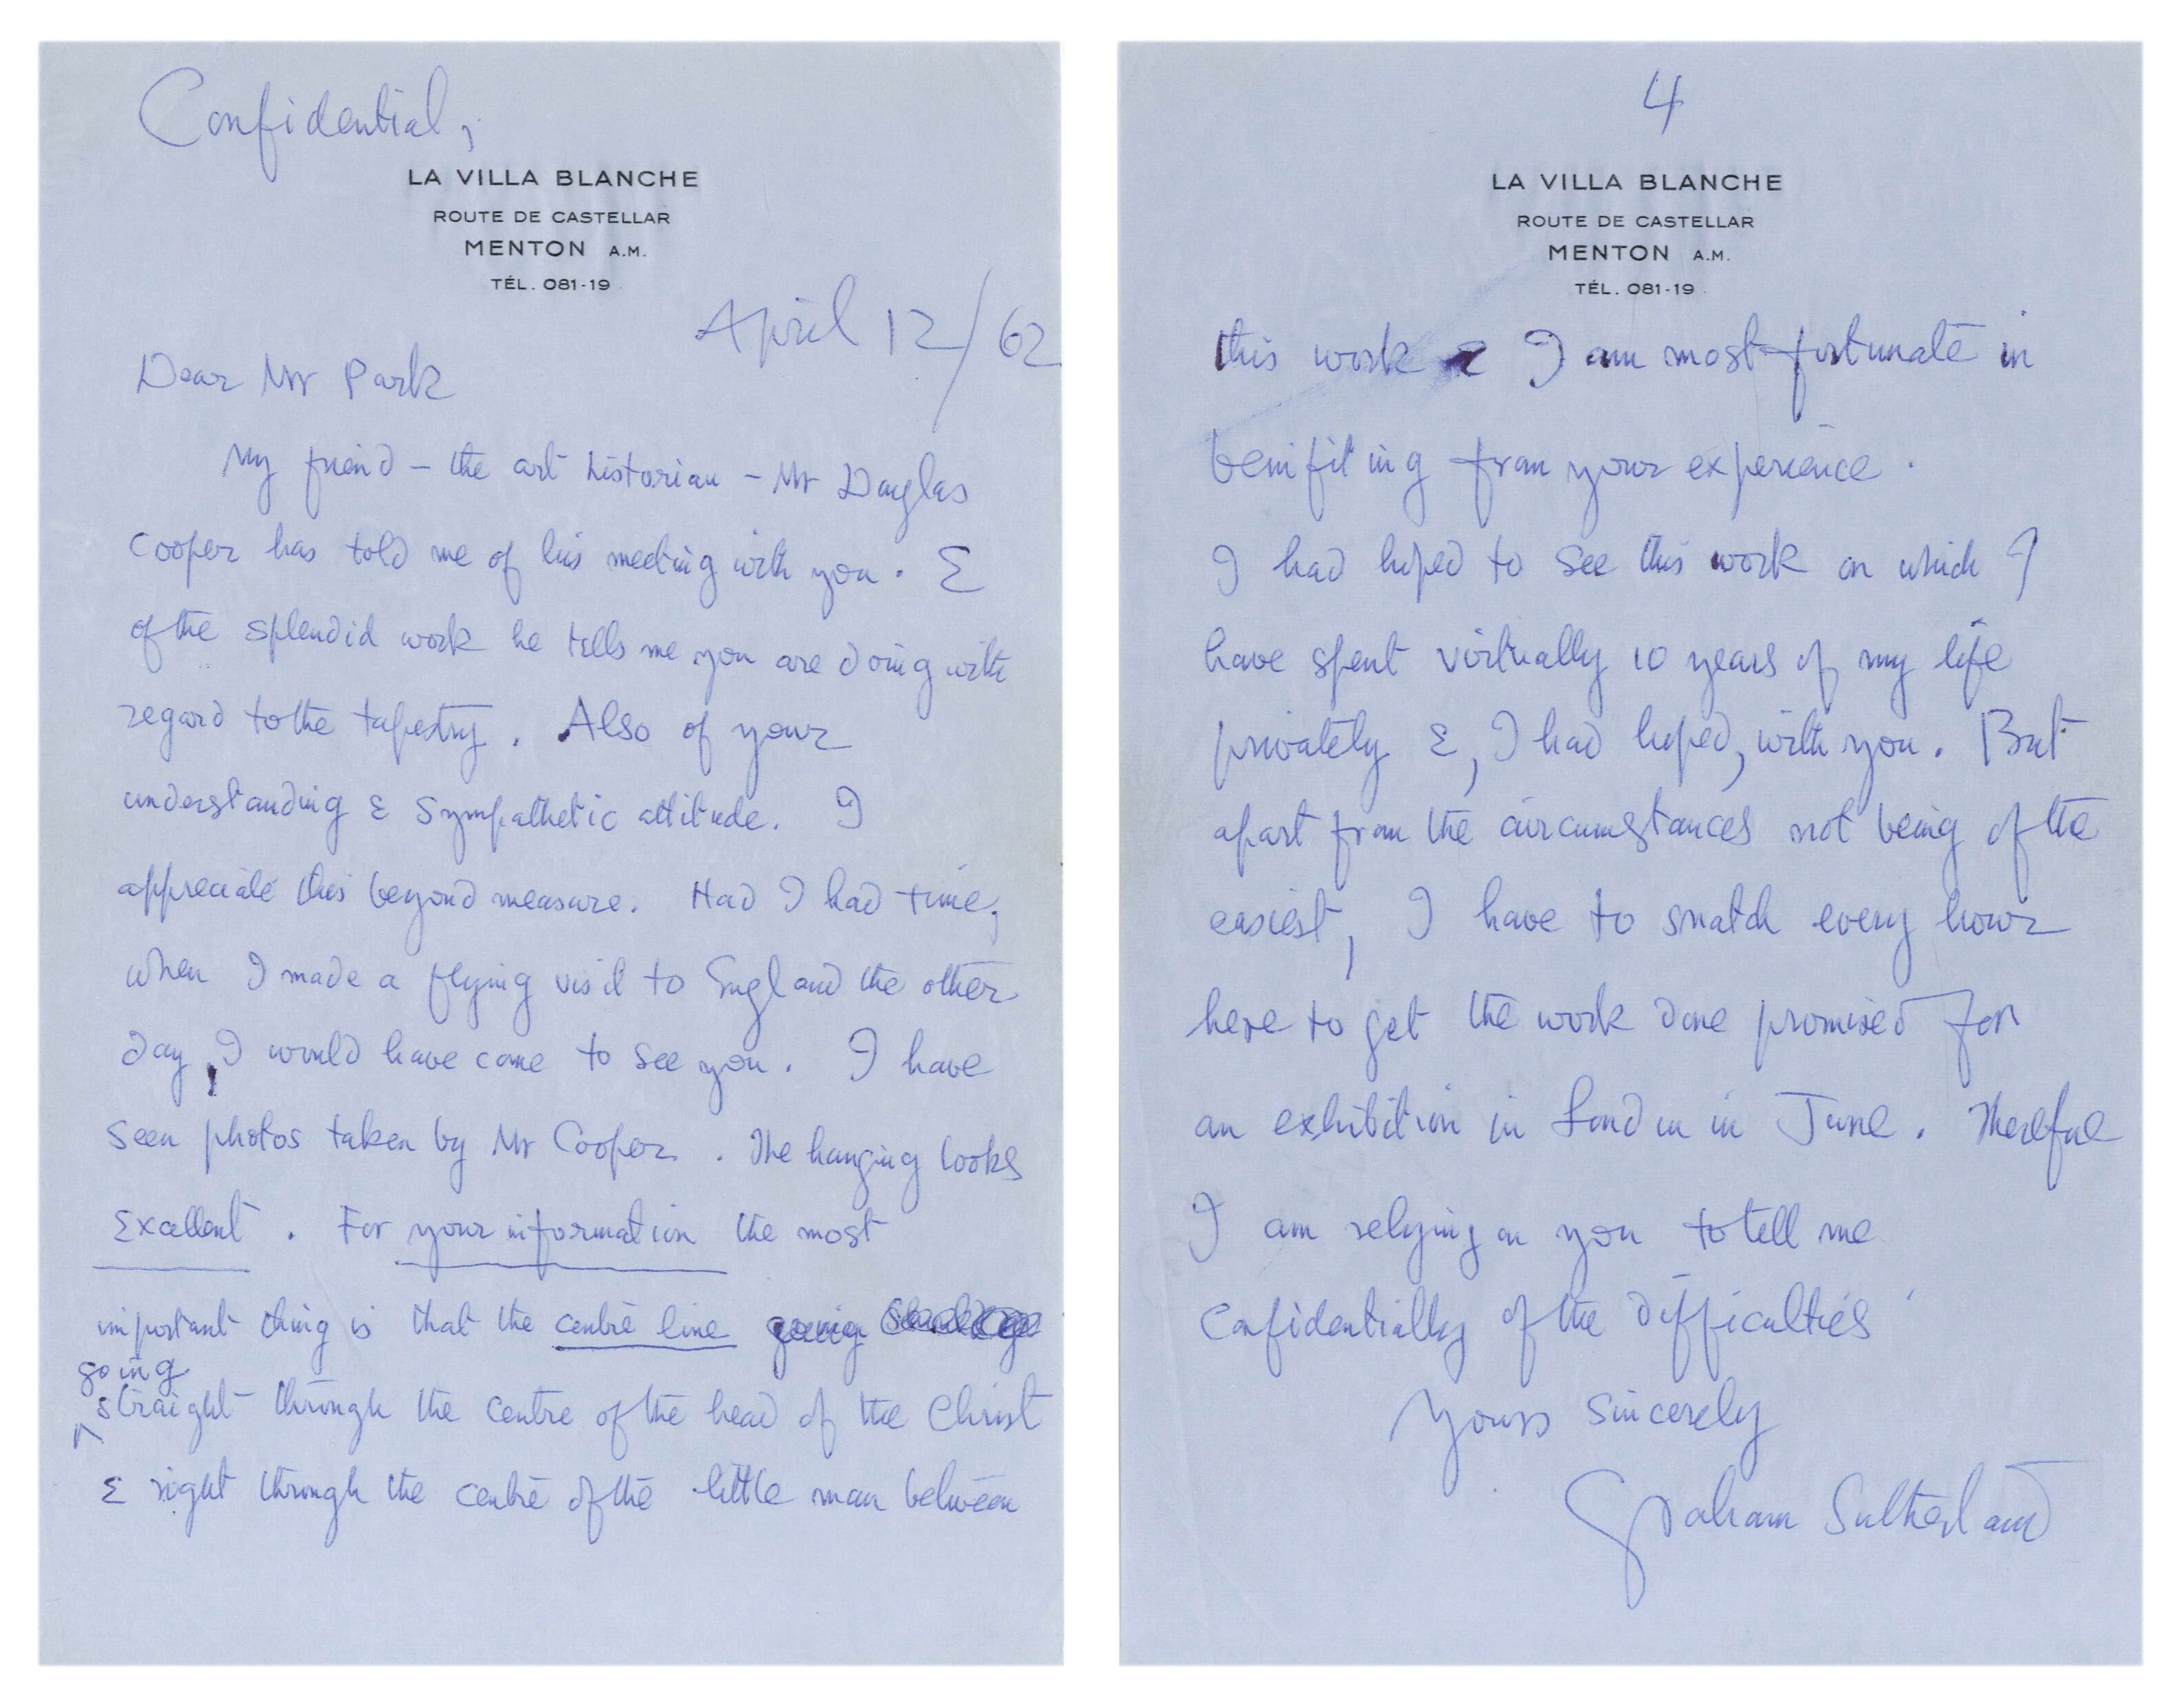 Confidential,
LA VILLA BLANCHE
ROUTE DE CASTELLAR
MENTON A.M.
TÉL. 081-19
April 12/62
Dear Mr Park
My friend – the art historian – Mr Douglas
Cooper has told me of his meeting with you. &
of the splendid work he tells me you are doing with
regard to the tapestry. Also of your
understanding & sympathetic attitude. I
appreciate this beyond measure. Had I had time,
when I made a flying visit to England the other
day, I would have come to see you. I have
seen photos taken by Mr Cooper. The hanging looks
Excellent. For your information the most
important thing is that the centre line going
going
straight through the centre of the head of the Christ
& right through the centre of the little man between
4
LA VILLA BLANCHE
ROUTE DE CASTELLAR
MENTON A.M.
TÉL. 081-19
this work & I am most fortunate in
benifiting from your experience.
I had hoped to see this work on which I
have spent virtually 10 years of my life
privately &, I had hoped, with you. But
apart from the circumstances not being of the
easiest, I have to snatch every hour
here to get the work done promised for
an exhibition in London in June. Therefore
I am relying on you to tell me
confidentially of the difficulties
Yours sincerely
Graham Sutherland